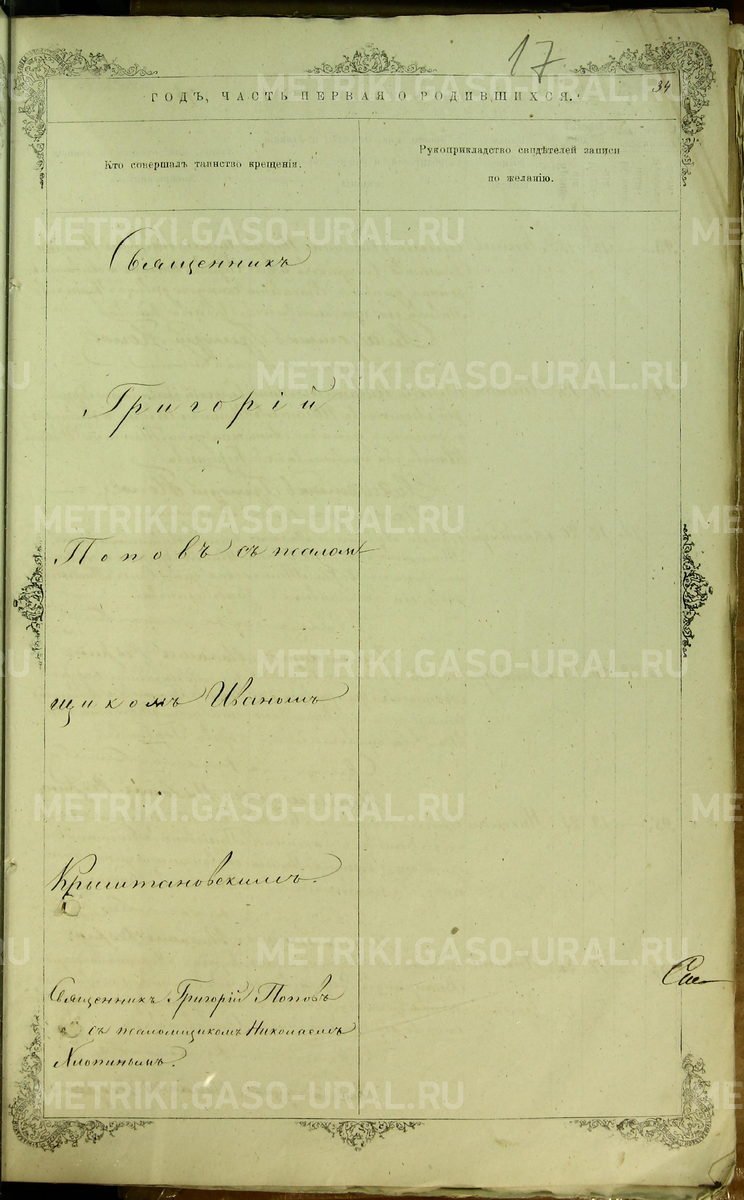 17.
34
ГОДЪ, ЧАСТЬ ПЕРВАЯ О РОДИВШИХСЯ.
Кто совершалъ таинство крещенія.
Рукоприкладство свидѣтелей записи
по желанію.
Священникъ
Григорій
Поповъ съ псалом
щикомъ Иваномъ
Крыштановскимъ.
Священникъ Григорій Поповъ
съ псаломщикомъ Николаемъ
Хлопинымъ.
METRIKI.GASO-URAL.RU